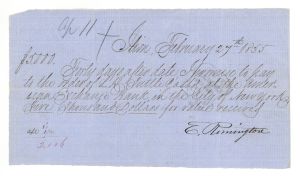 Ilion February 27th 1855
$5000.
Forty days after date I promise to pay
to the order of & Co at the Amer
ican Exchange Bank in the City of New York
five thousand Dollars for value received
E. Remington